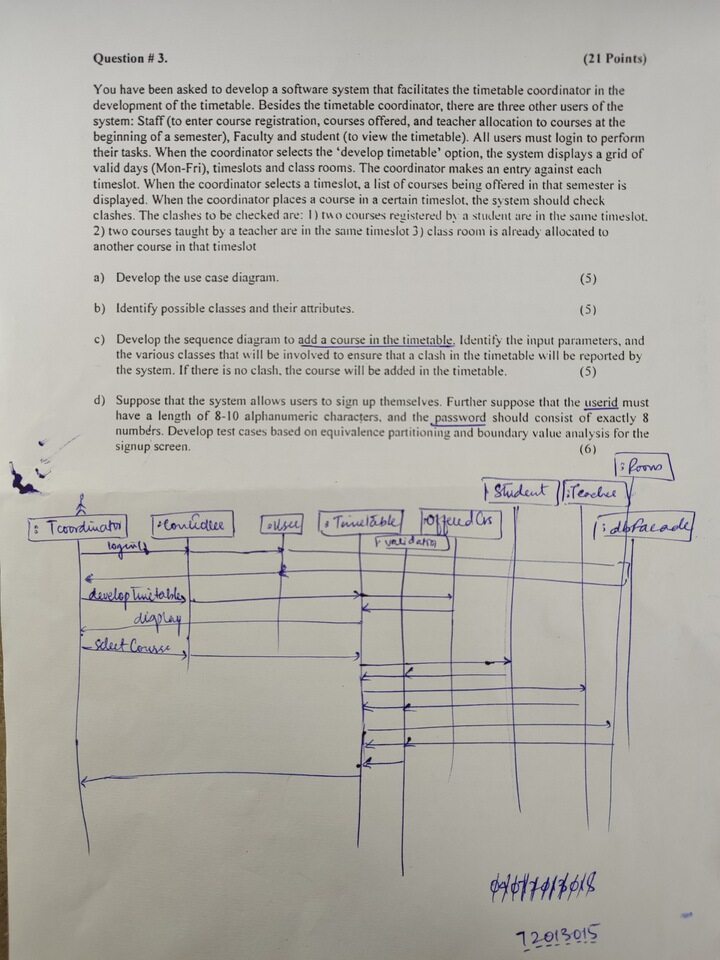 Question # 3.
(21 Points)
You have been asked to develop a software system that facilitates the timetable coordinator in the
development of the timetable. Besides the timetable coordinator, there are three other users of the
system: Staff (to enter course registration, courses offered, and teacher allocation to courses at the
beginning of a semester), Faculty and student (to view the timetable). All users must login to perform
their tasks. When the coordinator selects the ‘develop timetable’ option, the system displays a grid of
valid days (Mon-Fri), timeslots and class rooms. The coordinator makes an entry against each
timeslot. When the coordinator selects a timeslot, a list of courses being offered in that semester is
displayed. When the coordinator places a course in a certain timeslot, the system should check
clashes. The clashes to be checked are: 1) two courses registered by a student are in the same timeslot.
2) two courses taught by a teacher are in the same timeslot 3) class room is already allocated to
another course in that timeslot
a) Develop the use case diagram. (5)
b) Identify possible classes and their attributes. (5)
c) Develop the sequence diagram to add a course in the timetable. Identify the input parameters, and
the various classes that will be involved to ensure that a clash in the timetable will be reported by
the system. If there is no clash, the course will be added in the timetable. (5)
d) Suppose that the system allows users to sign up themselves. Further suppose that the userid must
have a length of 8-10 alphanumeric characters, and the password should consist of exactly 8
numbers. Develop test cases based on equivalence partitioning and boundary value analysis for the
signup screen. (6)
: Rooms
: Student
: Teacher
: Tcoordinator
: User
: Timetable
: OfferedCrs
: dbFacade
: validation
login
developTimetable
display
select Course
72013015